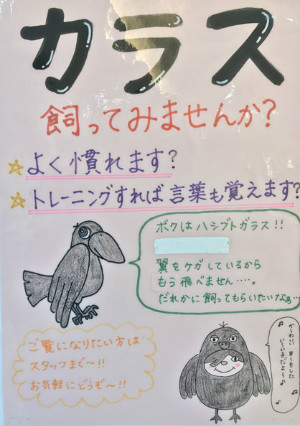 カラス
飼ってみませんか?
☆よく慣れます?
☆トレーニングすれば言葉も覚えます?
ボクはハシブトガラス!!
翼をケガしているから
もう飛べません…。
だれかに飼ってもらいたいなぁ
ご覧になりたい方は
スタッフまで〜!!
お気軽にどうぞ〜!!